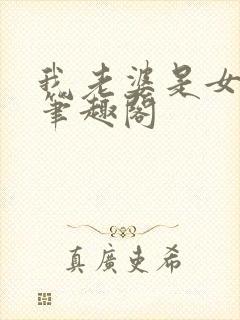 我老婆是女
笔趣阁
真广史希